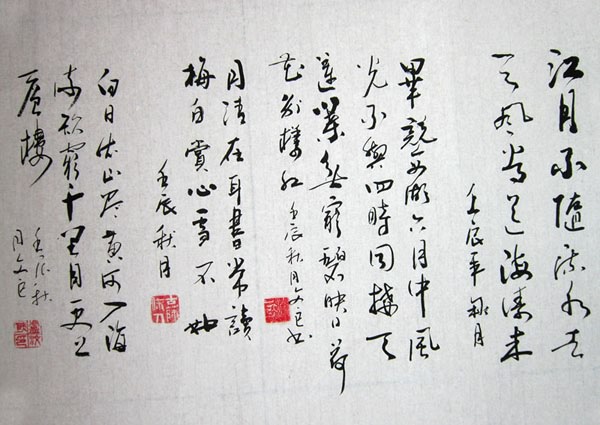 江月不隨流水去
天風送海濤来
壬辰年秋月
畢竟西湖六月中風
光不與四時同接天
蓮葉無窮碧映日荷
花别樣紅 壬辰秋月文已书
月清在耳書常讀
梅白賞心雪不如
壬辰秋月
白日依山尽黄河入海
流欲窮千里目更上
一層樓
壬辰秋
月文已